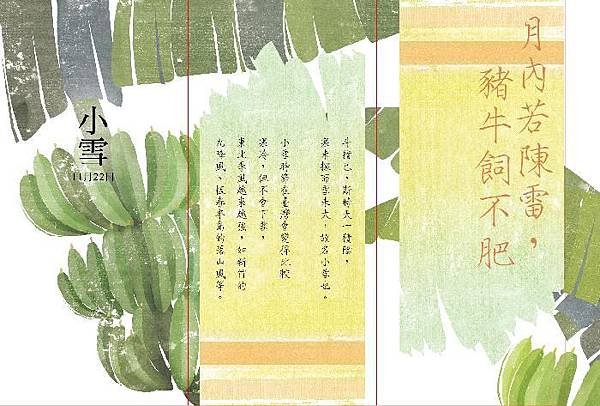 月內若陳雷，
豬牛飼不肥
斗指己，斯時天一積陰，
寒未極而雪未大，故名小雪也。
小雪時節在臺灣會變得比較
寒冷，但不會下雪，
東北季風越來越強，如新竹的
九降風、恆春半島的落山風等。
小雪
11月22日